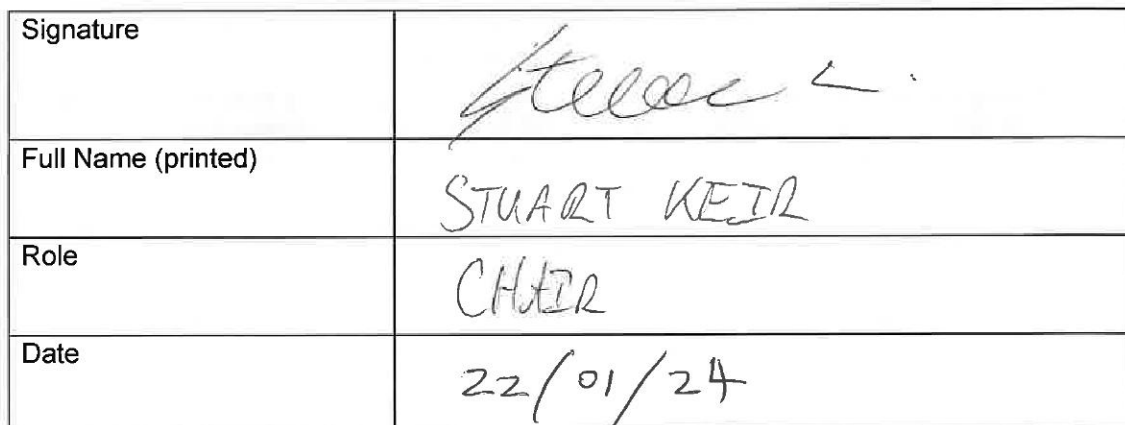 Signature
Full Name (printed)
STUART KEIR
Role
CHAIR
Date
22/01/24